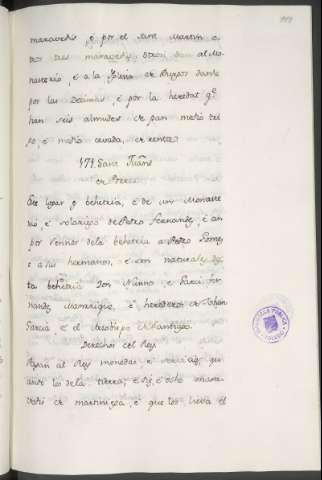 maravedis, e por el Sant Martin o-
tros tres maravedis, otrosi dan al Mo-
nasterio, e a la Eglesia de Burgos dante
por las Decimas, e por la heredat qe
han seis almudes de pan medio tri-
go, e medio cevada, de renta
171. Sant Juane
de
Este logar e behetria, e de un Monaste
rio e solariego de Pedro Fernandez, e an
por Sennor dela behetria a Pedro Gomez
e a sus hermanos, e son naturales de
la behetria Don Nunno, e Garci Fer
nandez Manrique, e herederos de Johan
Garcia e el Arzobispo de Santiago
Derechos del Rey
Pagan al Rey monedas e servicios qu
ando los dela tierra, e dis, e ocho marave
vedis de martiniega, e que los lieva el